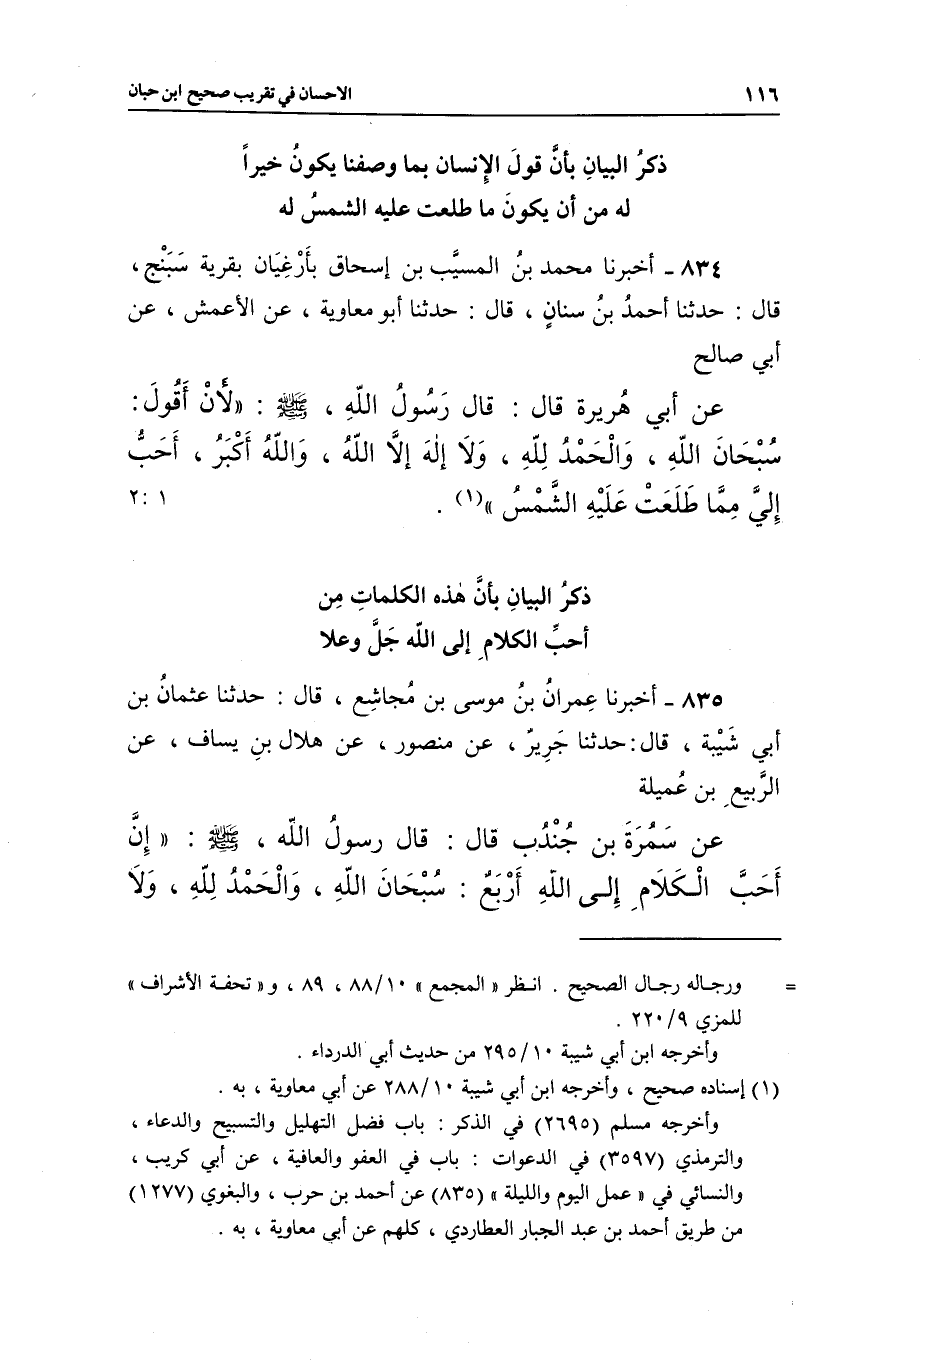 ١١٦ الاحسان في تقريب صحيح ابن حبان
ذكرُ البيانِ بأنَّ قولَ الإنسان بما وصفنا يكونُ خيراً
له من أن يكونَ ما طلعت عليه الشمسُ له
٨٣٤ ـ أخبرنا محمد بنُ المسيَّب بن إسحاق بأَرْغِيَان بقرية سَبَنْج،
قال : حدثنا أحمدُ بنُ سنانٍ ، قال : حدثنا أبو معاوية ، عن الأعمش ، عن
أبي صالح
عن أبي هُريرة قال : قال رَسُولُ اللّهِ ، ﷺ : «لَأَنْ أَقُولَ:
سُبْحَانَ اللّهِ ، وَالْحَمْدُ لِلّهِ ، وَلَا إِلٰهَ إلَّا اللّهُ ، وَاللّهُ أَكْبَرُ ، أَحَبُّ
إِليَّ مِمَّا طَلَعَتْ عَلَيْهِ الشَّمْسُ »(١) . ١ :٢
ذكرُ البيانِ بأنَّ هٰذه الكلماتِ مِن
أحبِّ الكلامِ إلى اللّه جَلَّ وعلا
٨٣٥ ـ أخبرنا عِمرانُ بنُ موسى بن مُجاشِع ، قال : حدثنا عثمانُ بن
أبي شَيْبة ، قال: حدثنا جَرِيرٌ ، عن منصور ، عن هلال بنِ يساف ، عن
الرَّبيعِ بن عُميلة
عن سَمُرَةَ بن جُنْدُب قال : قال رسولُ اللّه ، ﷺ : « إنَّ
أَحَبَّ الْكَلَامِ إِلى اللّهِ أَرْبَعٌ : سُبْحَانَ اللّهِ ، وَالْحَمْدُ لِلّهِ ، وَلَا
= ورجاله رجال الصحيح . انظر « المجمع » ١٠/ ٨٨ ، ٨٩ ، و« تحفة الأشراف »
للمزي ٩/ ٢٢٠ .
وأخرجه ابن أبي شيبة ١٠/ ٢٩٥ من حديث أبي الدرداء .
(١) إسناده صحيح ، وأخرجه ابن أبي شيبة ١٠/ ٢٨٨ عن أبي معاوية ، به .
وأخرجه مسلم (٢٦٩٥) في الذكر : باب فضل التهليل والتسبيح والدعاء ،
والترمذي (٣٥٩٧) في الدعوات : باب في العفو والعافية ، عن أبي كريب ،
والنسائي في « عمل اليوم والليلة » (٨٣٥) عن أحمد بن حرب ، والبغوي (١٢٧٧)
من طريق أحمد بن عبد الجبار العطاردي ، كلهم عن أبي معاوية ، به .